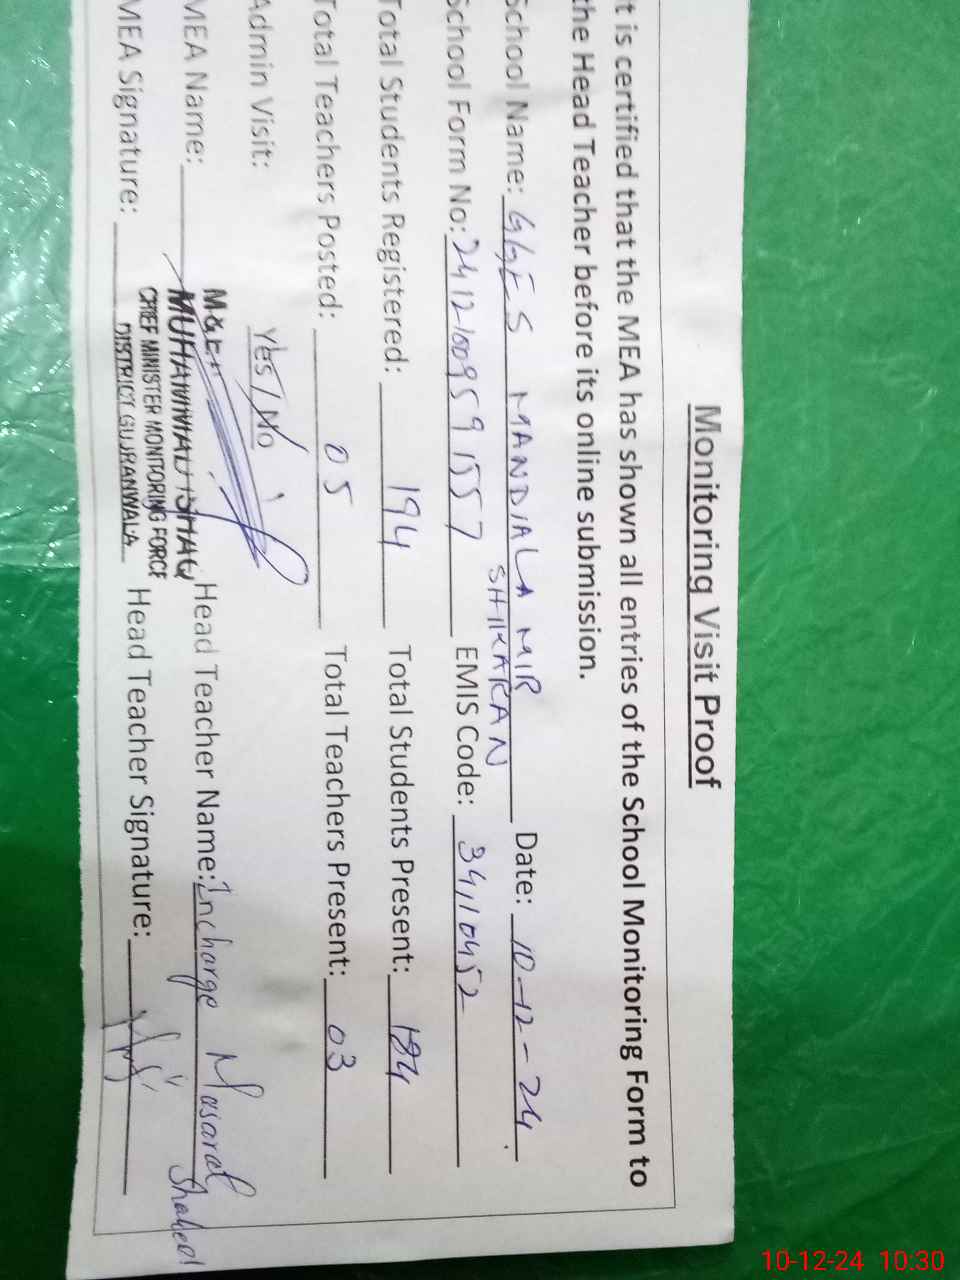 Monitoring Visit Proof
t is certified that the MEA has shown all entries of the School Monitoring Form to
the Head Teacher before its online submission.
School Name: GGES MANDIALA MIR SHIKARAN Date: 10-12-24
School Form No: EMIS Code: 34110452
Total Students Registered: 194 Total Students Present: 184
Total Teachers Posted: 05 Total Teachers Present: 03
Admin Visit: Yes / No
MEA Name: MUHAMMAD ISHAQ Head Teacher Name: Incharge Masarat Shaheen
CHIEF MINISTER MONITORING FORCE
MEA Signature: DISTRICT GUJRANWALA Head Teacher Signature:
10-12-24 10:30